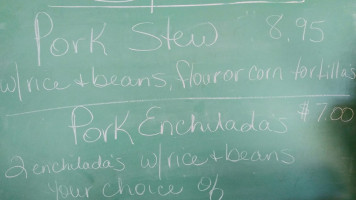 Pork Stew 8.95
w/rice + beans, flour or corn tortilla's
Pork Enchilada's $7.00
2 enchilada's w/rice + beans
your choice of